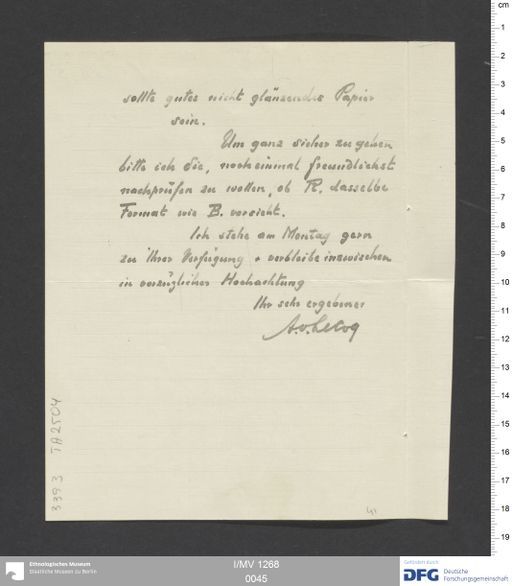 sollte gutes nicht glänzendes Papier
sein.
Um ganz sicher zu gehen
bitte ich Sie, noch einmal freundlichst
nachprüfen zu wollen, ob R. dasselbe
Format wie B. vorsieht.
Ich stehe am Montag gern
zu Ihrer Verfügung + verbleibe inzwischen
in vorzüglicher Hochachtung
Ihr sehr ergebener
A.v.LeCoq
3393 TA2504
41
cm
0
1
2
3
4
5
6
7
8
9
10
11
12
13
14
15
16
17
18
19
Ethnologisches Museum
Staatliche Museen zu Berlin
I/MV 1268
0045
Gefördert durch
DFG Deutsche
Forschungsgemeinschaft